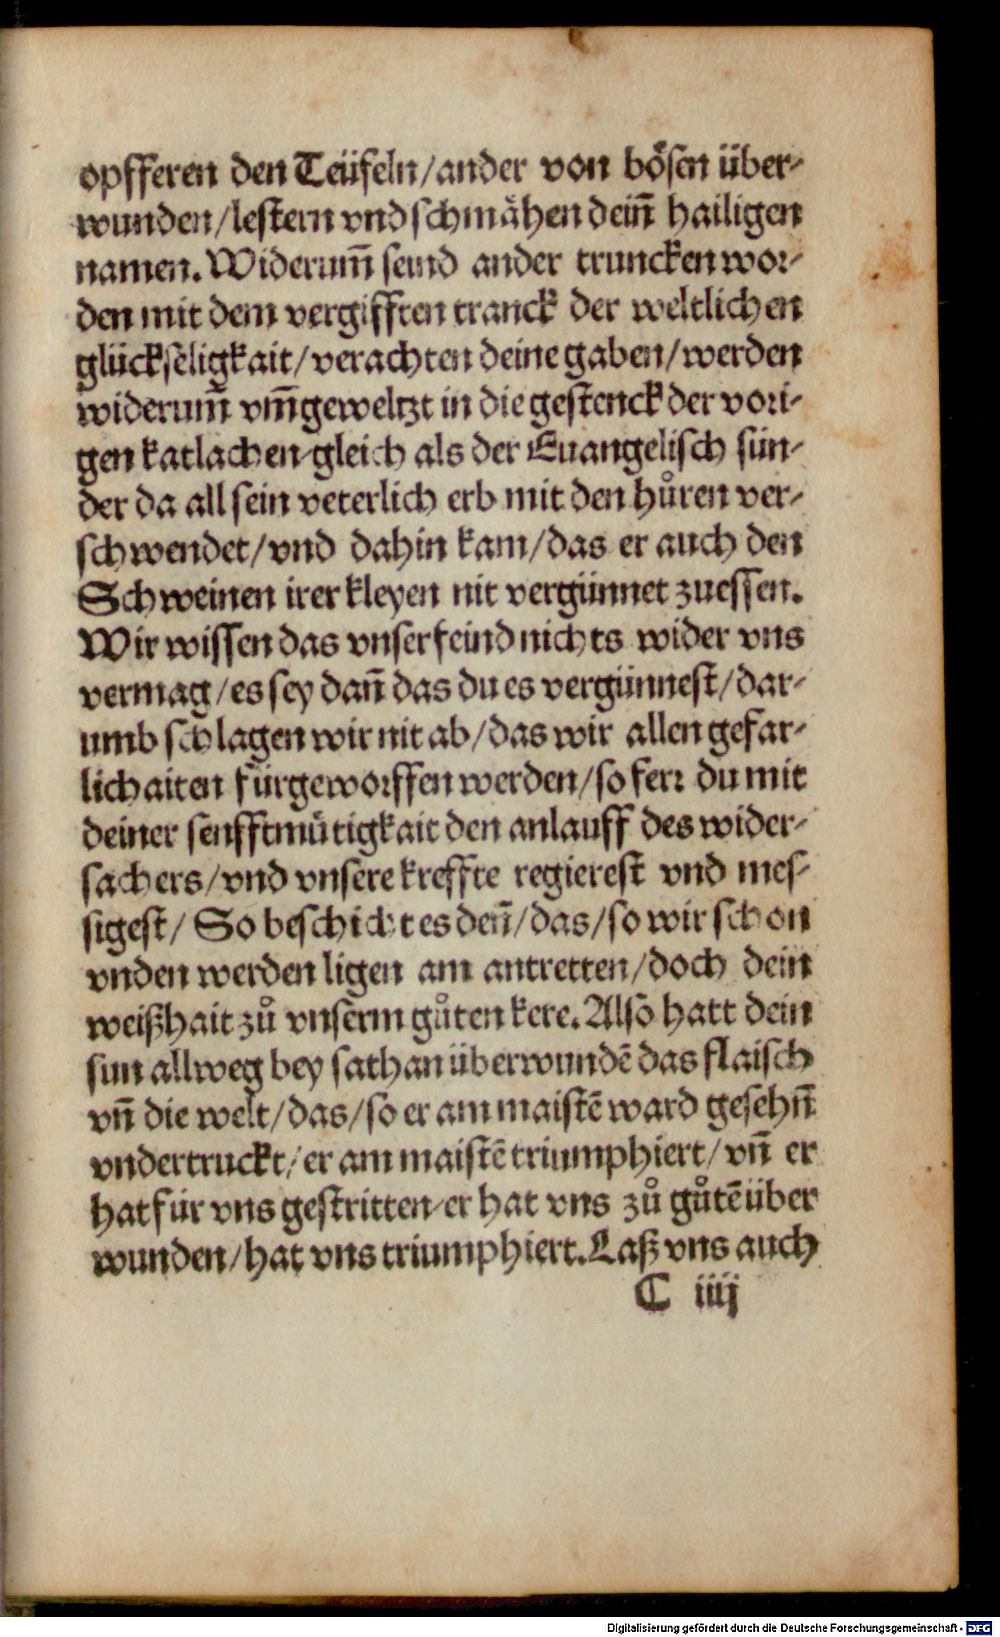 opfferen den Teüfeln/ander von bösen über-
wunden/lestern vnd schmähen dein̄ hailigen
namen. Widerum̄ seind ander truncken wor-
den mit dem vergifften tranck der weltlichen
glückseligkait/verachten deine gaben/werden
widerum̄ vm̄geweltzt in die gestenck der vori-
gen katlachen/gleich als der Euangelisch sün-
der da all sein veterlich erb mit den hůren ver-
schwendet/vnd dahin kam/das er auch den
Schweinen irer kleyen nit vergünnet zuessen.
Wir wissen das vnser feind nichts wider vns
vermag/es sey dan̄ das du es vergünnest/dar-
umb schlagen wir nit ab/das wir allen gefar-
lichaiten fürgeworffen werden/so ferr du mit
deiner senfftmütigkait den anlauff des wider-
sachers/vnd vnsere kreffte regierest vnd mes-
sigest/ So beschicht es den̄/das/so wir schon
vnden werden ligen am antretten/doch dein
weißhait zů vnserm gůten kere. Also hatt dein
sun allweg bey sathan überwundē das flaisch
vn̄ die welt/das/so er am maistē ward gesehn̄
vndertruckt/er am maistē triumphiert/vn̄ er
hat für vns gestritten/er hat vns zů gůtē über
wunden/hat vns triumphiert. Laß vns auch
C iiij
Digitalisierung gefördert durch die Deutsche Forschungsgemeinschaft - DFG